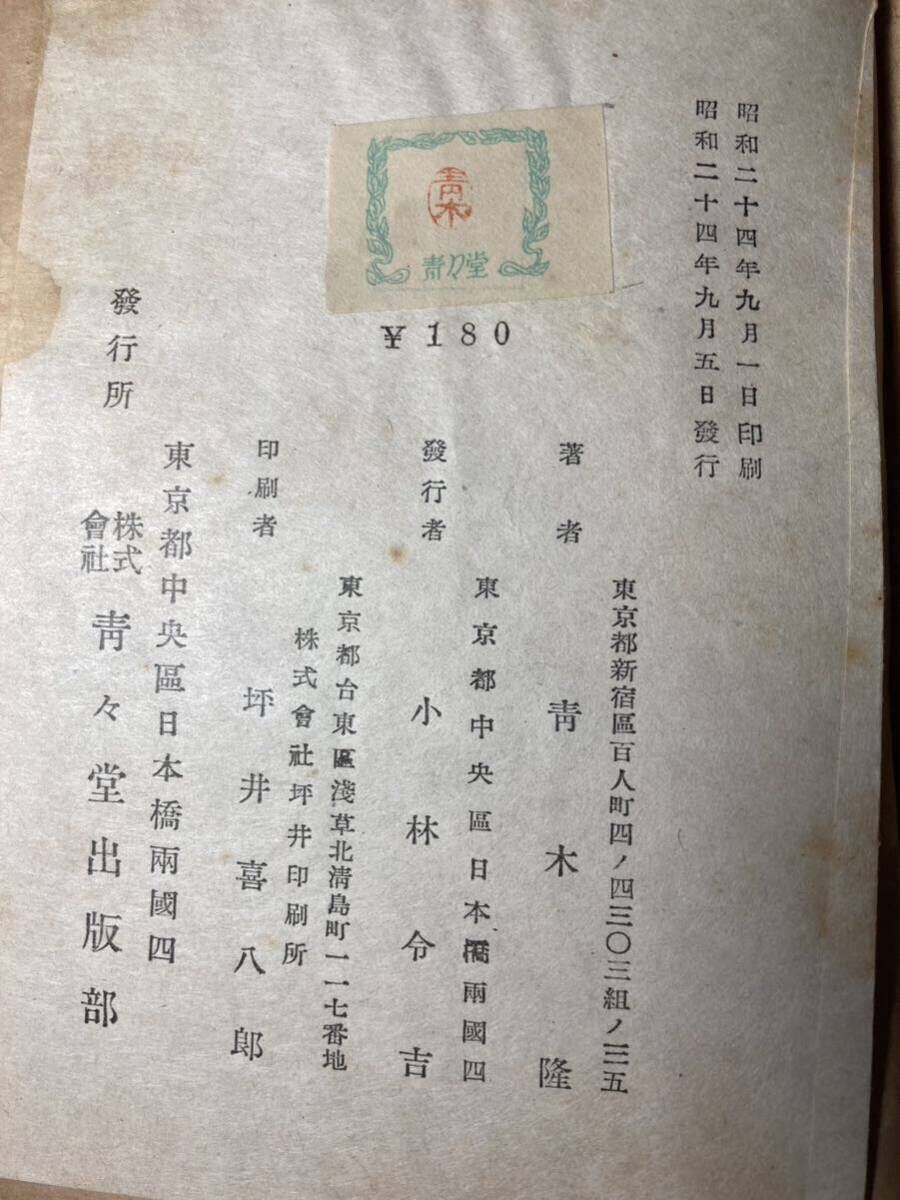 昭和二十四年九月一日印刷
昭和二十四年九月五日發行
青木
靑々堂
¥180
東京都新宿區百人町四ノ四三〇三組ノ三五
著者 靑木隆
東京都中央區日本橋兩國四
發行者 小林令吉
東京都台東區淺草北淸島町一一七番地
株式會社坪井印刷所
印刷者 坪井喜八郎
東京都中央區日本橋兩國四
發行所 株式會社 靑々堂出版部